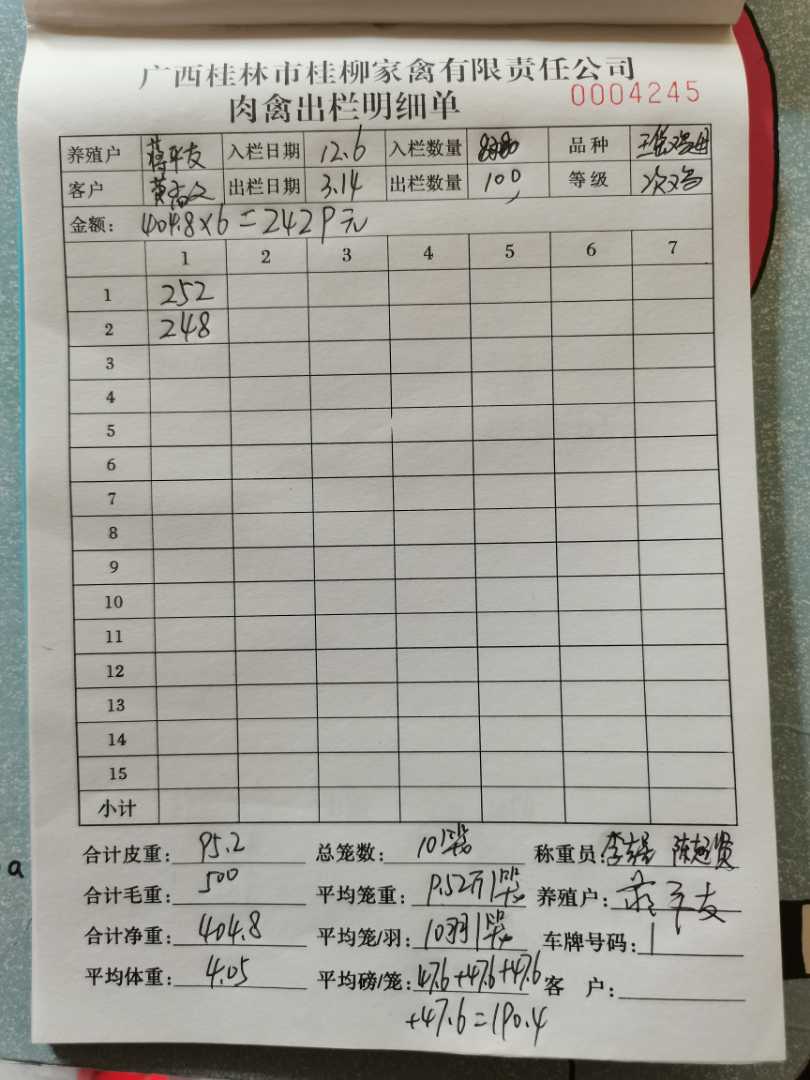 广西桂林市桂柳家禽有限责任公司
肉禽出栏明细单 0004245
养殖户 蒋平友 入栏日期 12.6 入栏数量 品种
客户 出栏日期 3.14 出栏数量 100 等级 次鸡
金额: 404.8×6=2429元
1 2 3 4 5 6 7
1 252
2 248
3
4
5
6
7
8
9
10
11
12
13
14
15
小计
合计皮重: 95.2 总笼数: 10笼 称重员:
合计毛重: 500 平均笼重: 9.52斤/笼 养殖户: 蒋平友
合计净重: 404.8 平均笼/羽: 10羽/笼 车牌号码:
平均体重: 4.05 平均磅/笼: 47.6+47.6+47.6 客户:
+47.6=190.4
a